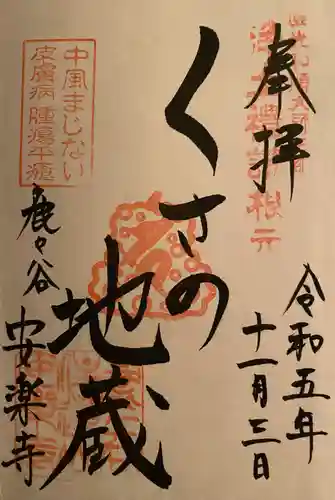 奉拝
令和五年
十一月三日
くさの
地蔵
中風まじない
皮膚病 腫瘍平癒
鹿ヶ谷
安楽寺